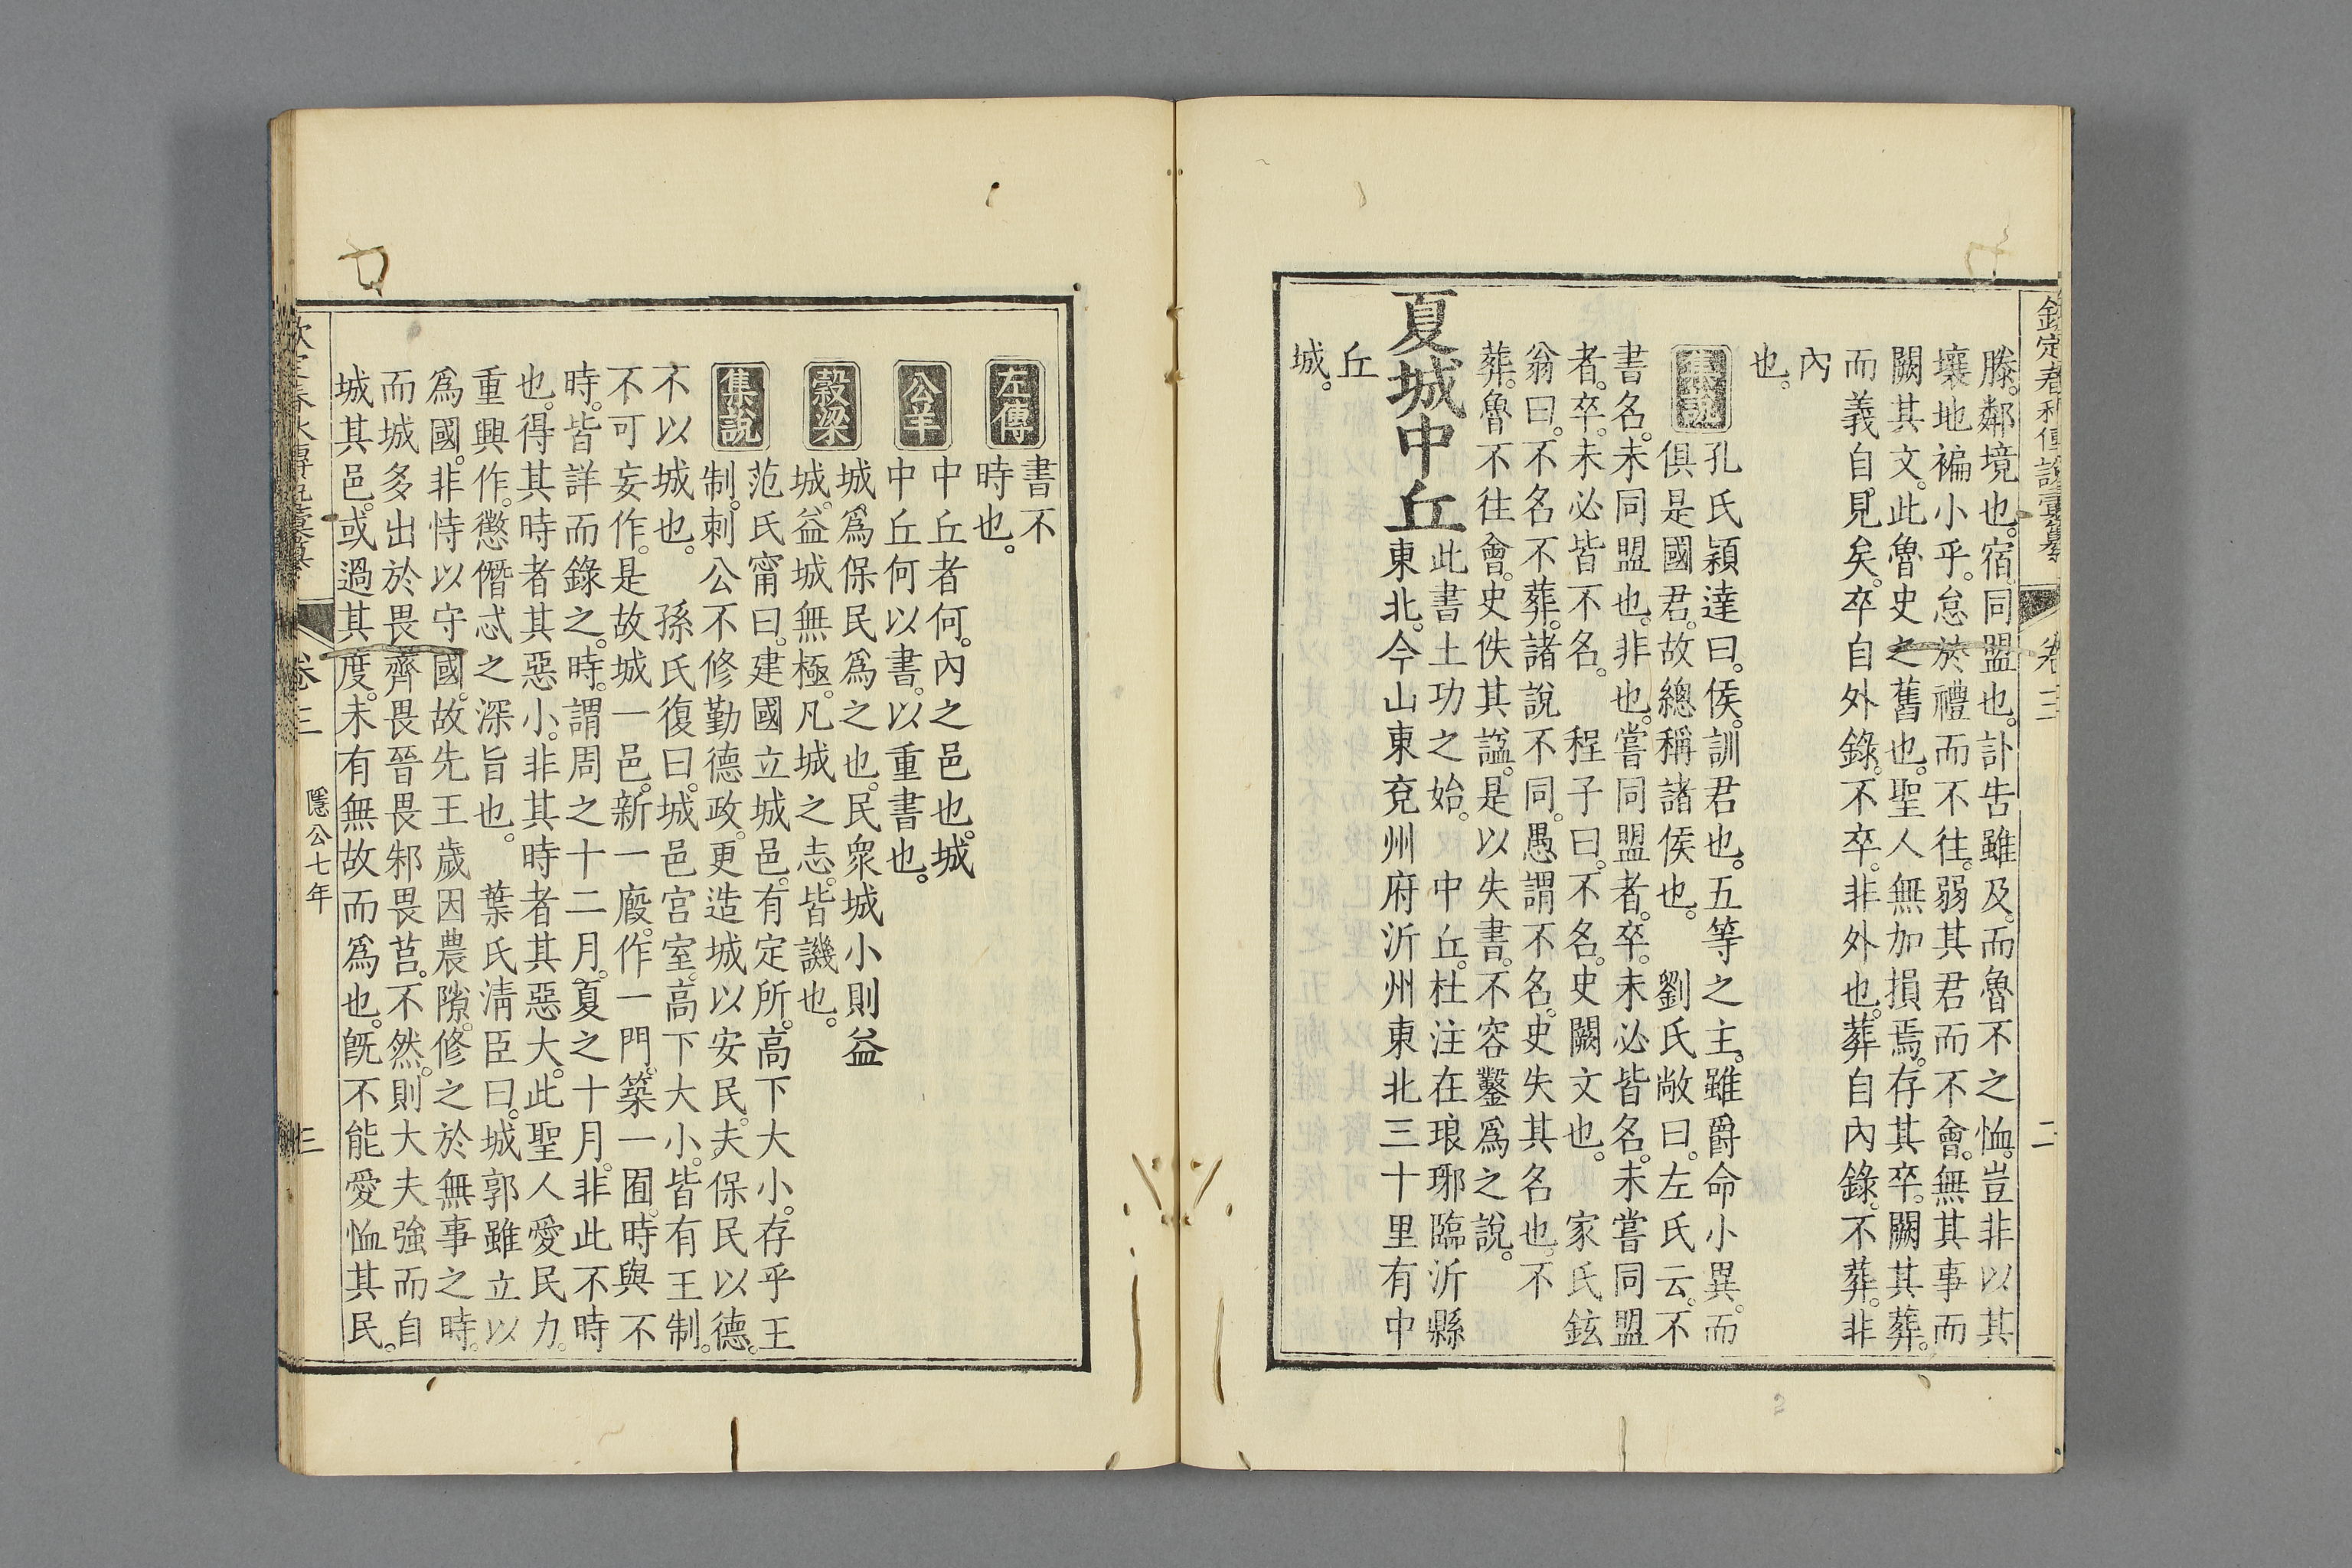 欽定春秋傳說彙纂 卷三 二
滕。鄰境也。宿。同盟也。訃告雖及。而魯不之恤。豈非以其
壤地褊小乎。怠於禮而不往。弱其君而不會。無其事而
闕其文。此魯史之舊也。聖人無加損焉。存其卒。闕其葬。
而義自見矣。卒自外錄。不卒。非外也。葬自內錄。不葬。非
內
也。
集說
孔氏穎達曰。侯。訓君也。五等之主。雖爵命小異。而
俱是國君。故總稱諸侯也。 劉氏敞曰。左氏云。不
書名。未同盟也。非也。嘗同盟者。卒。未必皆名。未嘗同盟
者。卒。未必皆不名。 程子曰。不名。史闕文也。 家氏鉉
翁曰。不名不葬。諸說不同。愚謂不名。史失其名也。不
葬。魯不往會。史佚其諡。是以失書。不容鑿爲之說。
夏城中丘
此書土功之始。 中丘。杜注在琅琊臨沂縣
東北。今山東兗州府沂州東北三十里有中
丘
城。
左傳
書不
時也。
公羊
中丘者何。內之邑也。城
中丘何以書。以重書也。
穀梁
城。爲保民爲之也。民衆城小則益
城。益城無極。凡城之志。皆譏也。
集說
范氏甯曰。建國立城邑。有定所。高下大小。存乎王
制。刺公不修勤德政。更造城以安民。夫保民以德。
不以城也。 孫氏復曰。城邑宮室。高下大小。皆有王制。
不可妄作。是故城一邑。新一廄。作一門。築一囿。時與不
時。皆詳而錄之。時。謂周之十二月。夏之十月。非此不時
也。得其時者其惡小。非其時者其惡大。此聖人愛民力。
重興作。懲僭忒之深旨也。 葉氏淸臣曰。城郭雖立以
爲國。非恃以守國。故先王歲因農隙。修之於無事之時。
而城多出於畏齊畏晉畏邾畏莒。不然。則大夫強而自
城其邑。或過其度。未有無故而爲也。旣不能愛恤其民。
欽定春秋傳說彙纂 卷三 隱公七年 三